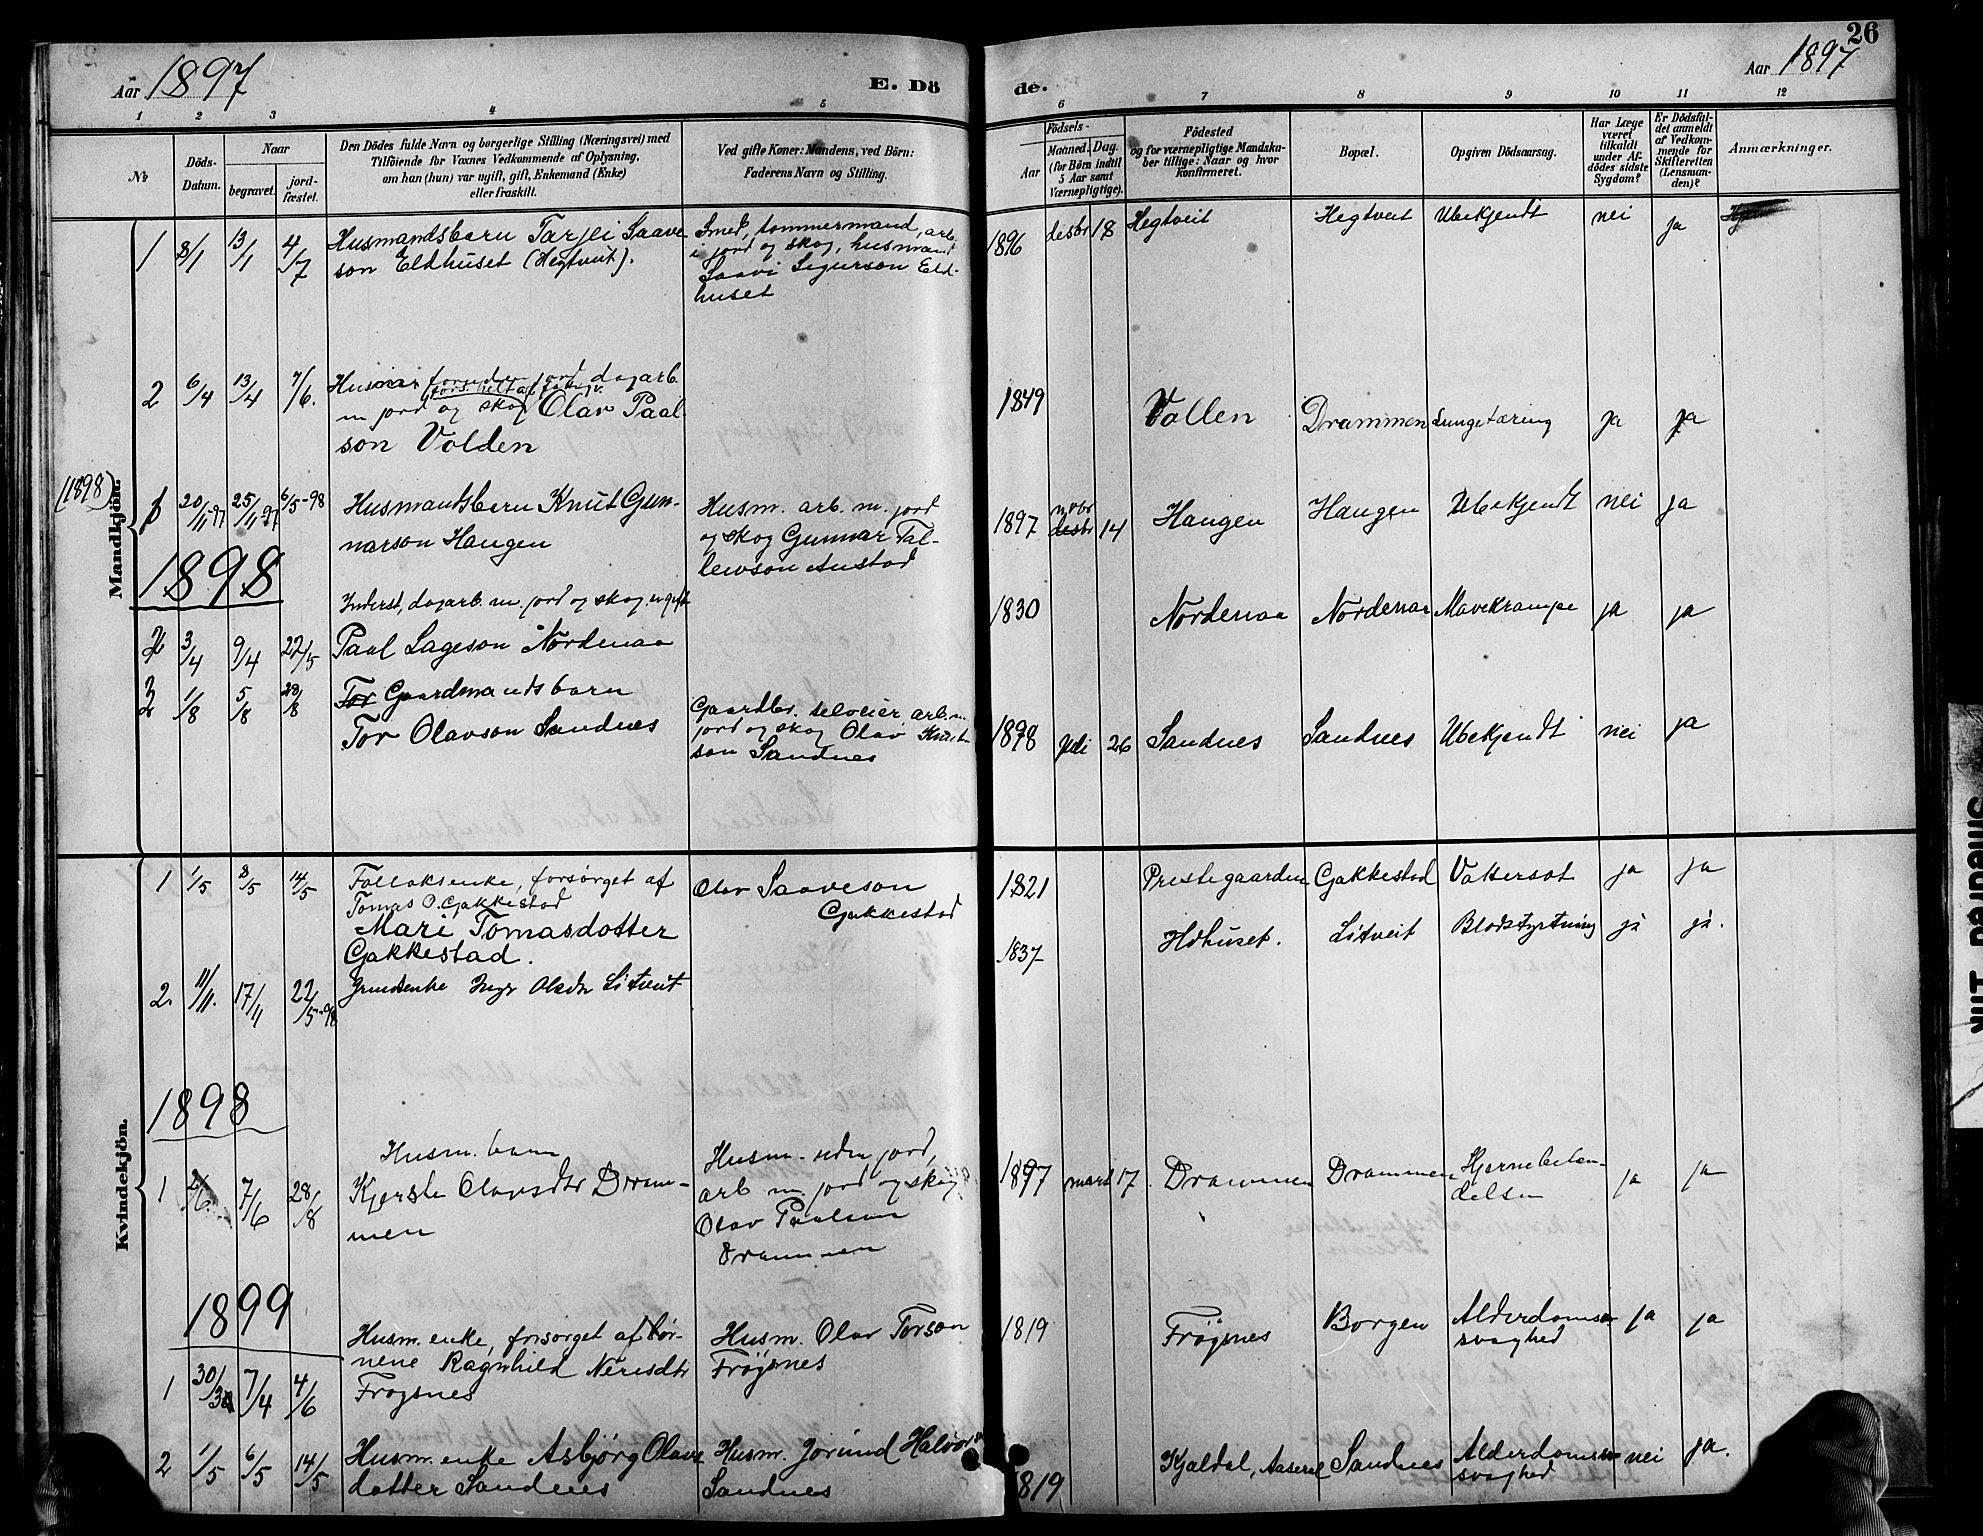 Aar 1897
E. Dö
de.
Aar 1897
26
1 2 3 4 5 6 7 8 9 10 11 12
№
Döds-
Datum.
Naar
begravet.
jord-
fæstet.
Den Dödes fulde Navn og borgerlige Stilling (Næringsvei) med
Tilföiende for Voxnes Vedkommende af Oplysning,
om han (hun) var ugift, gift, Enkemand (Enke)
eller fraskilt.
Ved gifte Koner: Mandens, ved Börn:
Faderens Navn og Stilling.
Födsels-
Aar
Maaned. Dag.
(for Börn indtil
5 Aar samt
Værnepligtige).
Födested
og for værnepligtige Mandska-
ber tillige: Naar og hvor
konfirmeret.
Bopæl.
Opgiven Dödsaarsag.
Har Læge
været
tilkaldt
under Af-
dödes sidste
Sygdom?
Er Dödsfal-
det anmeldt
af Vedkom-
mende for
Skifteretten
(Lensman-
den)?
Anmærkninger.
Mandkjön.
1 8/1 13/1 4/7
Husmandsbarn Tarjei Saave
son Eldhuset (Hegtveit).
Smed, tommermand, arb.
i jord og skog, husmand
Saavi Sigurson Eld-
huset
1896 desbr 18 Hegtveit Hegtveit Ubekjendt nei ja
2 6/4 13/4 7/6.
Husman foruden jord dagarb.
m jord og skog Olav Paal
son Volden
1849 Vollen Drammen Lungetæring ja ja
(1898)
20/11-97 25/11-97 6/5-98
Husmandsbarn Knut Gun-
narson Haugen
Husm. arb. m. jord
og skog Gunnar Tal-
lewson Austad
1897 novbr desbr 14 Haugen Haugen Ubekjendt nei ja
1898
Inderst, dagarb. m. jord og skog. ugift
3/4 9/4 22/5 Paal Lageson Nordenaa
1830 Nordenaa Nordenaa Mavekrampe ja ja
2 1/8 5/8 28/8
Tor Gaardmandsbarn
Tor Olavson Sandnes
Gaardbr. selveier, arb. m
jord og skog Olav Knut
son Sandnes
1898 juli 26 Sandnes Sandnes Ubekjendt nei ja
Kvindekjön.
1 1/5 8/5 14/5
Folloksenke, forsørget af
Tomas O. Gakkestad
Mari Tomasdotter
Gakkestad.
Olav Saaveson
Gakkestad
1821 Prestegaarden Gakkestad Vattersot ja ja
2. 11/11. 17/11 22/5-98
Olsdtr Litveit
1837 Litveit Blodstyrtning ja ja.
1898
1 7/6 28/8
Husm. barn
Kjersti Olavsdtr Dram-
men
Husm. uden jord,
arb m. jord og skog
Olav Paalson
Drammen
1897 mars 17 Drammen Drammen Hjernebeten-
delsen ja ja
1899
1 30/3 7/4 4/6
Husm. enke, forsørget af bør-
nene Ragnhild Nerisdtr
Frøysnes
Husm. Olav Torson
Frøysnes
1819 Frøysnes Borgen Alderdoms-
svaghed ja ja
2 1/5 6/5 14/5
Husm. enke Asbjørg Olavs
dotter Sandnes
Husm. Jorund Halvors
Sandnes
1819 Kjaldal, Aaseral Sandnes Alderdoms-
svaghed nei ja.